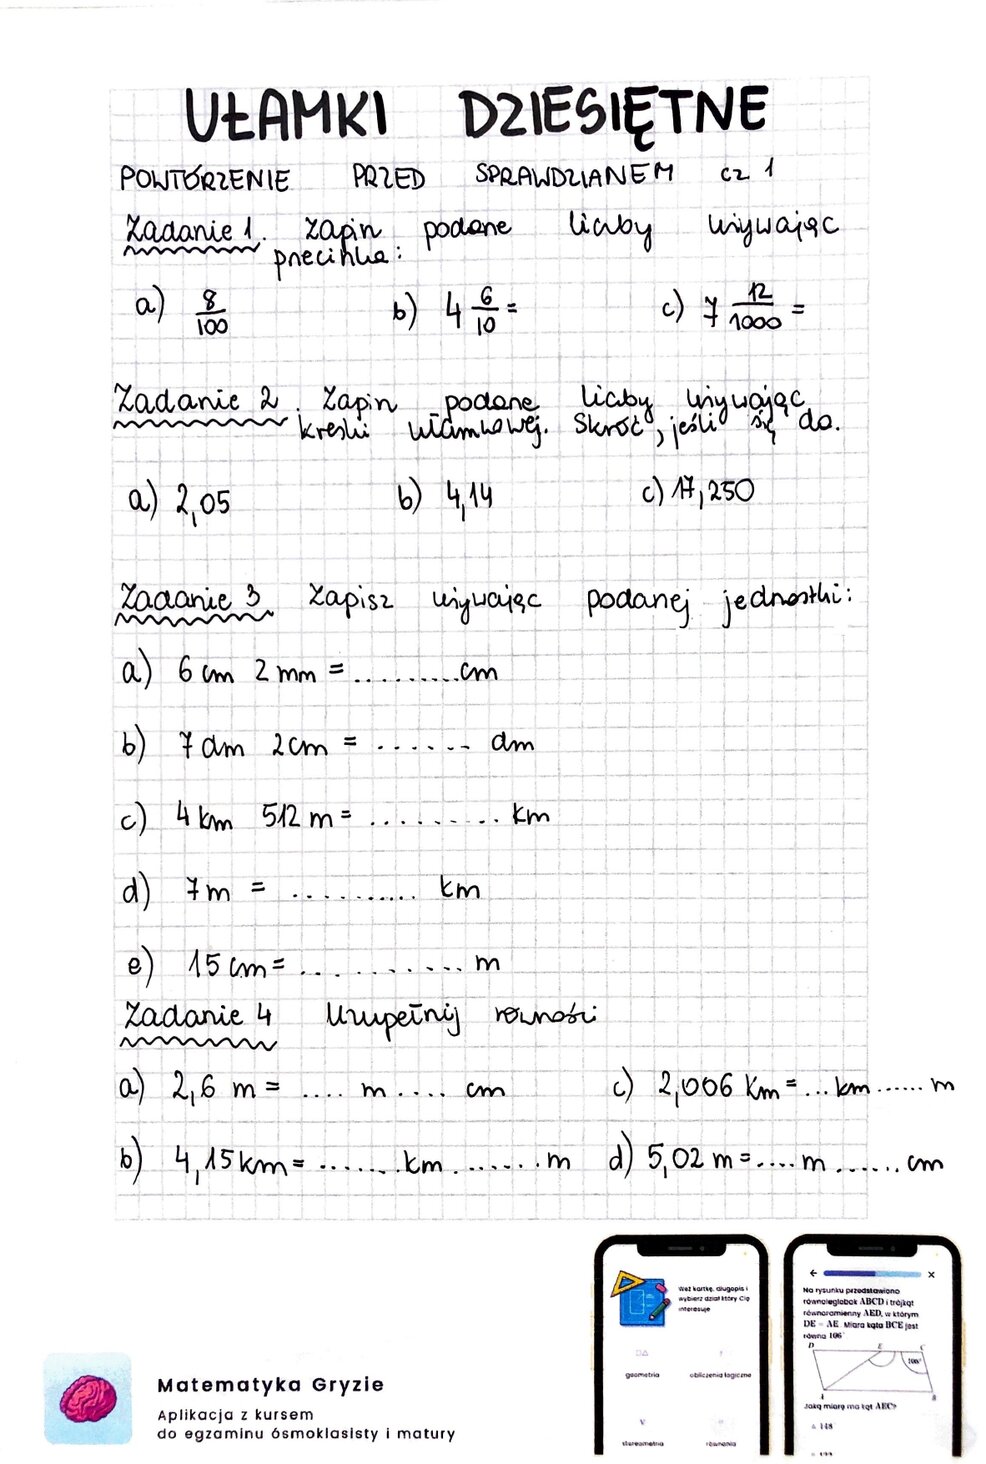 UŁAMKI DZIESIĘTNE
POWTÓRZENIE PRZED SPRAWDZIANEM cz 1
Zadanie 1. Zapisz podane liczby używając
przecinka:
a) 8/100 b) 4 6/10 = c) 7 12/1000 =
Zadanie 2. Zapisz podane liczby używając
kreski ułamkowej. Skróć, jeśli się da.
a) 2,05 b) 4,14 c) 17,250
Zadanie 3 Zapisz używając podanej jednostki:
a) 6 cm 2 mm = .......... cm
b) 7 dm 2 cm = ....... dm
c) 4 km 512 m = ......... km
d) 7 m = .......... km
e) 15 cm = ........... m
Zadanie 4 Uzupełnij równości
a) 2,6 m = .... m .... cm c) 2,006 km = ... km ...... m
b) 4,15 km = ....... km ....... m d) 5,02 m = .... m ...... cm
Weź kartkę, długopis i
wybierz dział który Cię
interesuje
geometria obliczenia łagiczne
stereometria równania
Na rysunku przedstawiono
równoległobok ABCD i trójkąt
równoramienny AED, w którym
DE = AE. Miara kąta BCE jest
równa 106°
D E C
106°
A B
Jaką miarę ma kąt AEC?
A 148
Matematyka Gryzie
Aplikacja z kursem
do egzaminu ósmoklasisty i matury